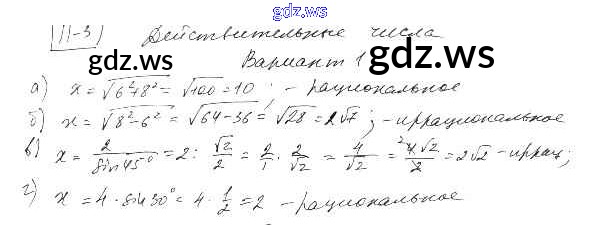 gdz.ws
П-3 Действительные числа
Вариант 1
gdz.ws gdz.ws
а) x = √(6²+8²) = √100 = 10; - рациональное
б) x = √(8²-6²) = √(64-36) = √28 = 2√7; - иррациональное
в) x = 2/sin45° = 2 : √2/2 = 2/1 · 2/√2 = 4/√2 = 4√2/2 = 2√2 - иррац;
г) x = 4 · sin30° = 4 · 1/2 = 2 - рациональное
gdz.ws gdz.ws